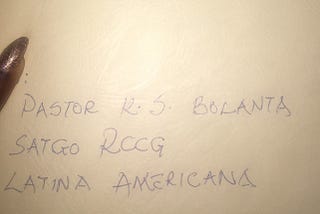 PASTOR K. S. BOLANTA
SATGO RCCG
LATINA AMERICANA